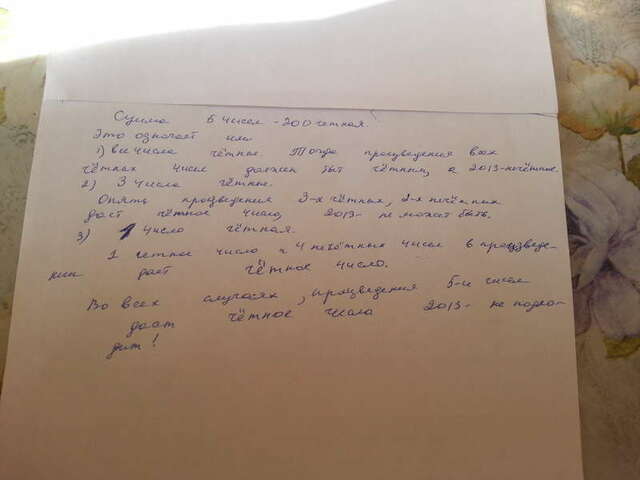 Сумма 5 чисел - 200 четная.
Это означает или
1) все числа чётные. Тогда произведения всех
чётных чисел должен быт чётным, а 2013-нечётные.
2) 3 числа чётные.
Опять произведения 3-х чётных, 2-х нечётных
даст чётное число, 2013- не может быть.
3) 1 число чётная.
1 четное число и 4 нечётных чисел в произведе-
нии дает чётное число.
Во всех случаях, произведения 5-и чисел
дает чётное число 2013- не подхо-
дит!